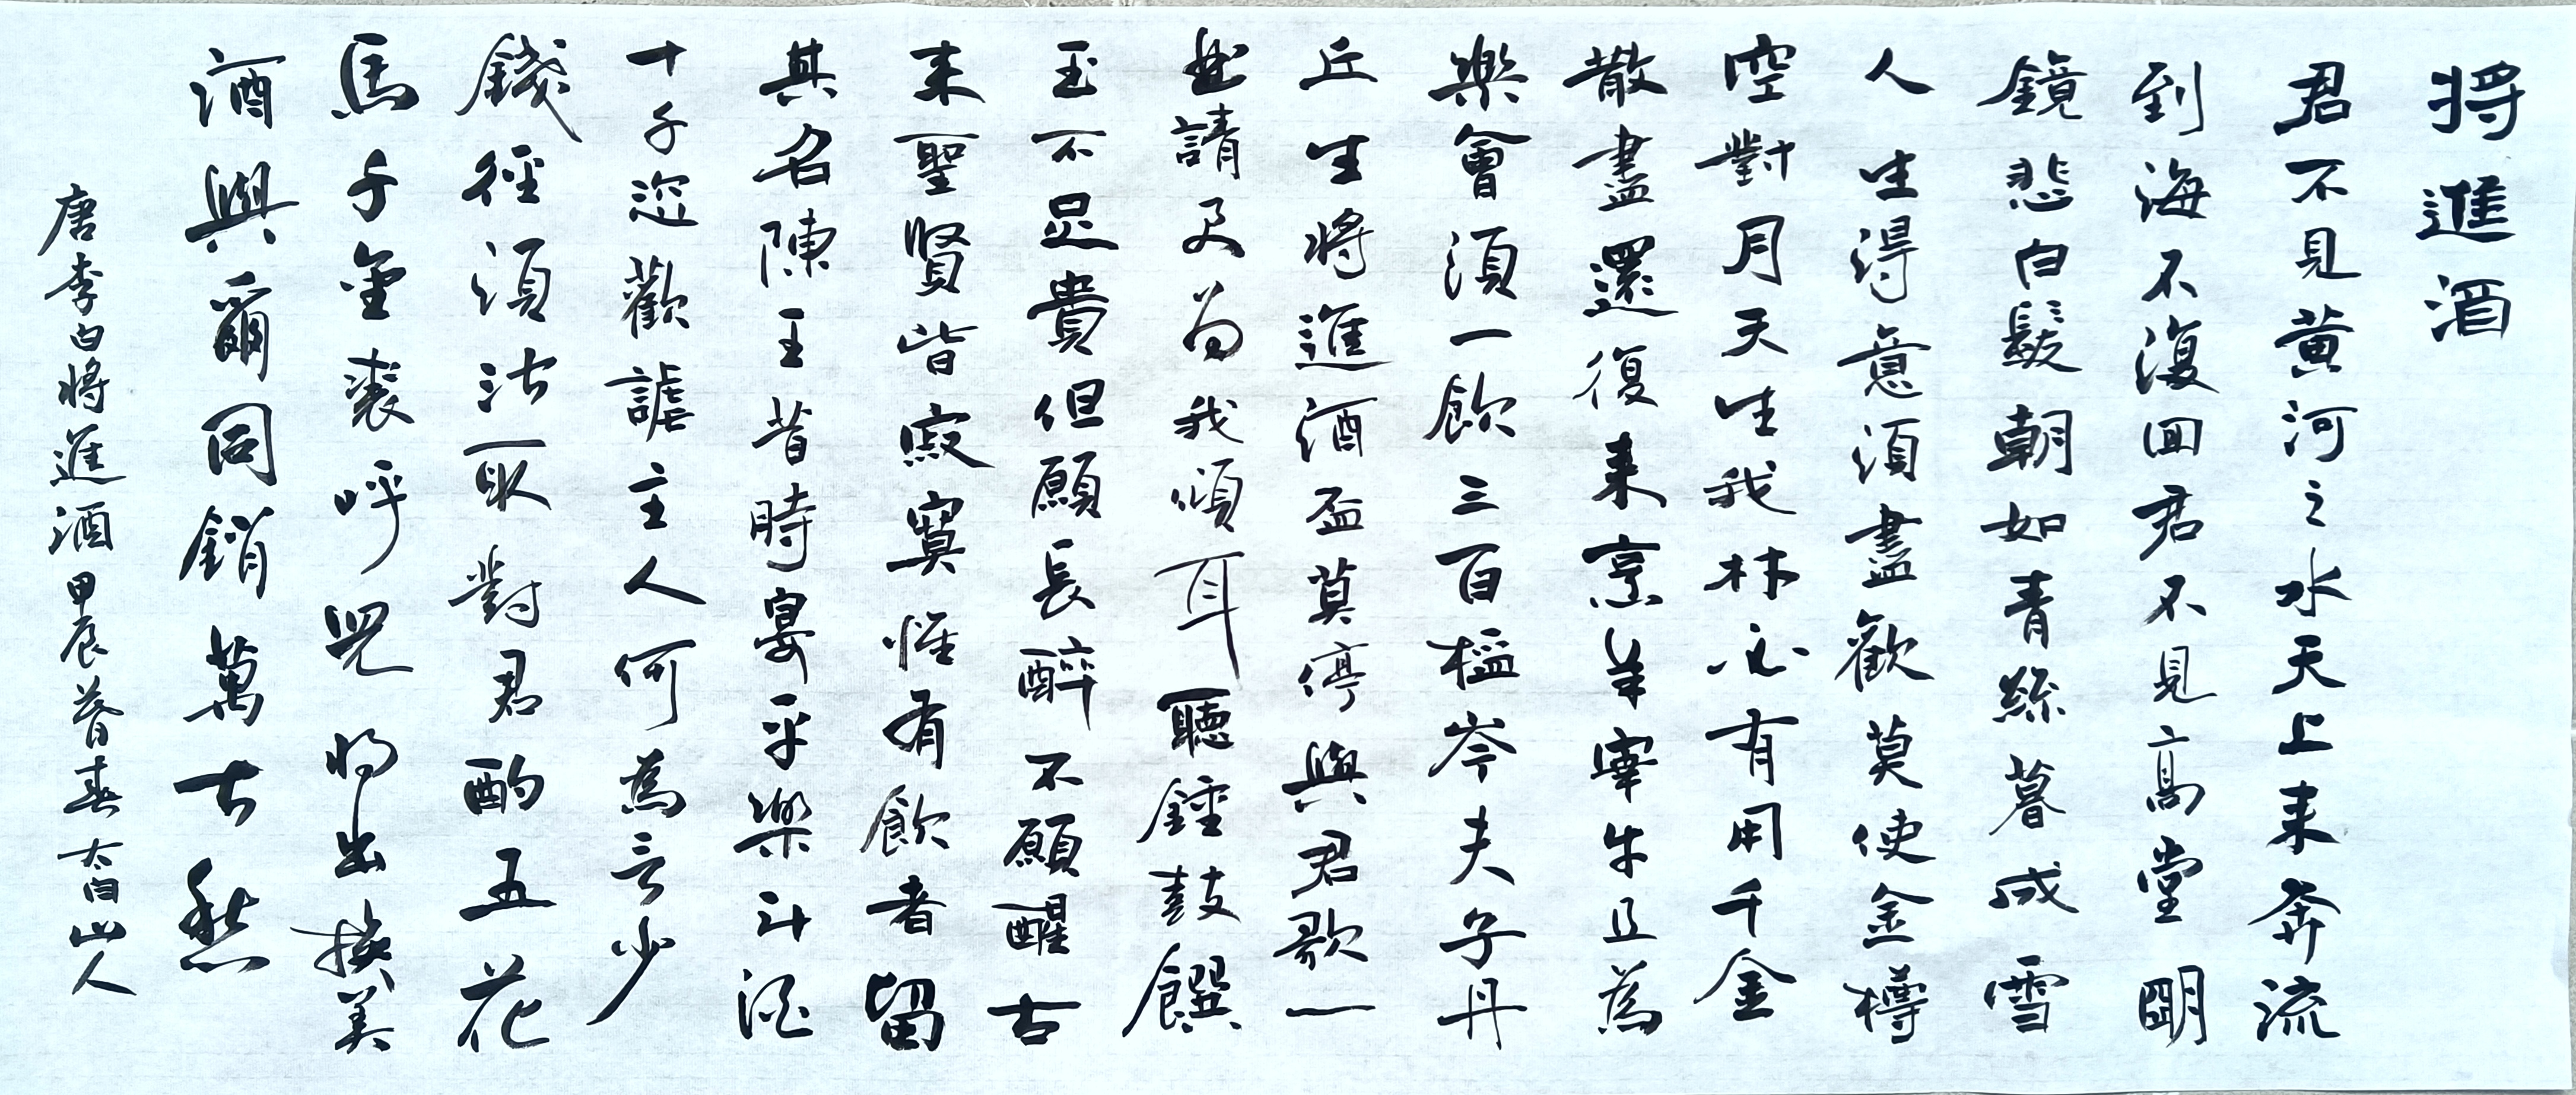 將進酒
君不見黃河之水天上来奔流
到海不復回君不見高堂明
鏡悲白髮朝如青絲暮成雪
人生得意須盡歡莫使金樽
空對月天生我材必有用千金
散盡還復来烹羊宰牛且為
樂會須一飲三百岑夫子丹
丘生將進酒盃莫停與君歌一
曲請君为我傾耳聽鍾鼓饌
玉不足貴但願長醉不願醒古
来聖賢皆寂寞惟有飲者留
其名陳王昔時宴平樂斗酒
十千恣歡謔主人何為言少
錢徑須沽取對君酌五花
馬千金裘呼兒将出換美
酒與爾同銷萬古愁
唐李白將進酒甲辰暮春太白山人